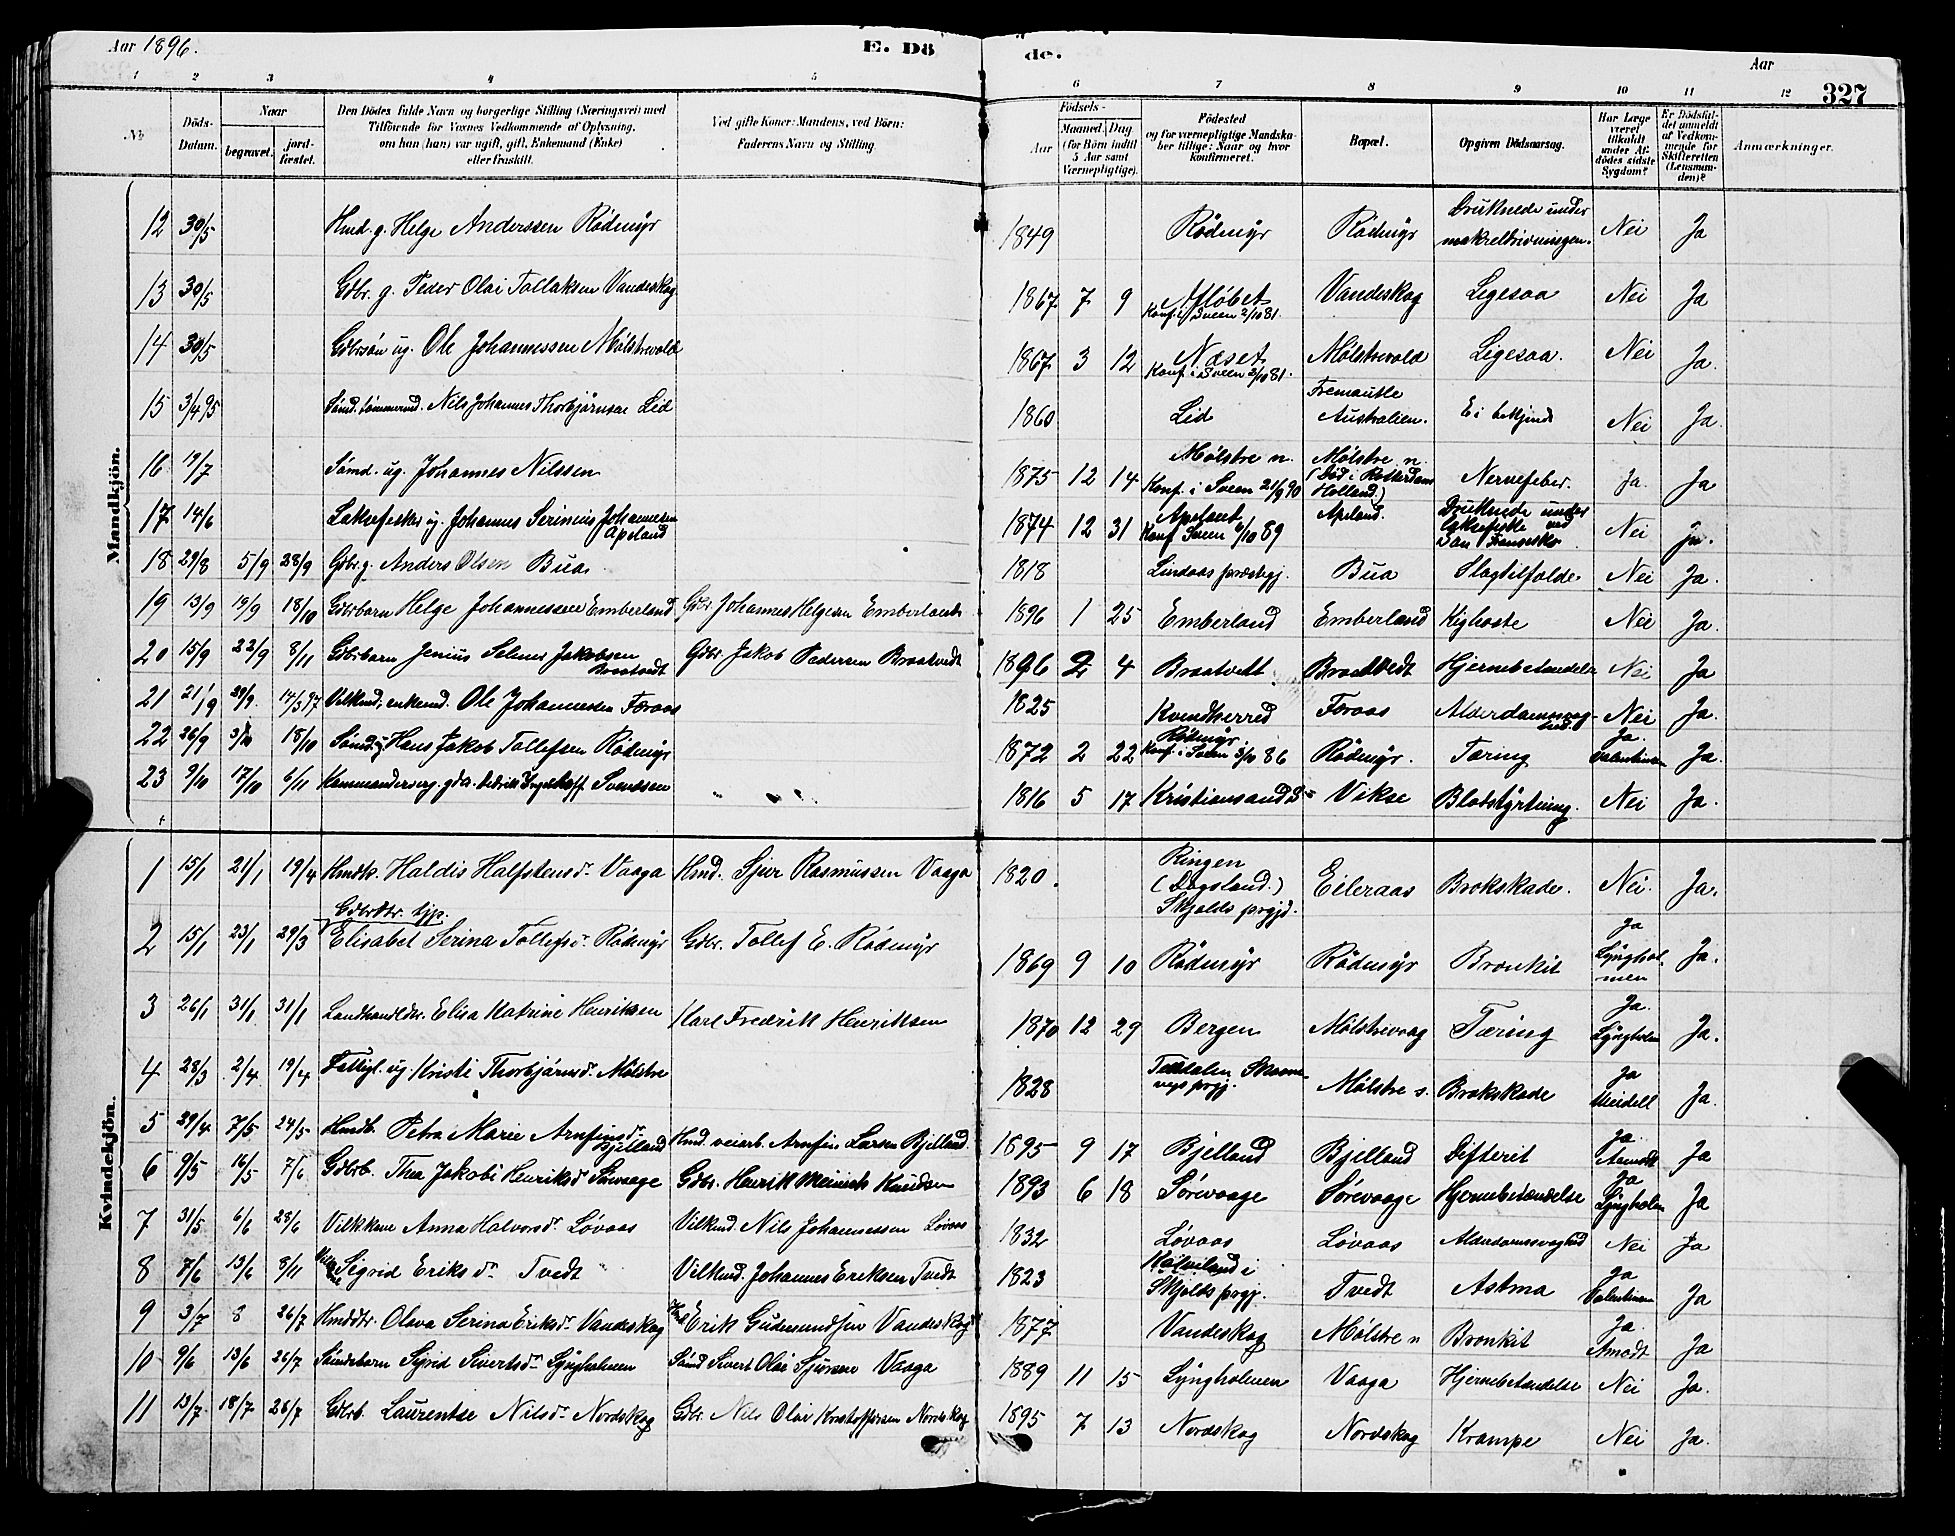 Aar 1896.
E. Dö
de.
Aar
327
1 2 3 4 5 6 7 8 9 10 11 12
№
Döds-Datum.
Naar
begravet.
jord-fæstet.
Den Dödes fulde Navn og borgerlige Stilling (Næringsvei) med
Tilföiende for Voxnes Vedkommende af Oplysning,
om han (hun) var ugift, gift, Enkemand (Enke)
eller fraskilt.
Ved gifte Koner: Mandens, ved Börn:
Faderens Navn og Stilling.
Födsels-
Aar
Maaned. Dag
(for Börn indtil
5 Aar samt
Værnepligtige).
Födested
og for værnepligtige Mandska-
ber tillige: Naar og hvor
konfirmeret.
Bopæl.
Opgiven Dödsaarsag.
Har Læge
været
tilkaldt
under Af-
dödes sidste
Sygdom?
Er Dödsfal-
det anmeldt
af Vedkom-
mende for
Skifteretten
(Lensman-
den)?
Anmærkninger.
Mandkjön.
12 30/5 Hmd. g. Helge Anderssen Rödmyr 1849 Rödmyr Rödmyr Druknede under makreldrivningen. Nei Ja
13 30/5 Gbr. g. Peder Olai Tollaksen Vandeskog 1867 7 9 Aflöbet Konf. i Sveen 2/10 81. Vandeskog Ligesaa Nei Ja
14 30/5 Gdbrsön ug. Ole Johannessen Mölstrevold 1867 3 12 Næset Konf. i Sveen 2/10 81. Mölstrevold Ligesaa. Nei Ja.
15 3/4 95 Sömd. tömmermd. Nils Johannes Thorbjörnsen Lid 1860 Lid Fremantle Australien. Ei bekjendt Nei Ja.
16 19/7 Sömd. ug. Johannes Nilssen 1875 12 14 Mölstre n. Konf. i Sveen 21/9 90 Mölstre n. (Död i Rotterdam Holland.) Nervefeber. Ja. Ja
17 14/6 Laksefisker ug. Johannes Serinius Johannesen Apeland 1874 12 31 Apeland Konf Sveen 6/10 89 Apeland. Druknede under laksefiske ved San Fransesko Nei Ja.
18 29/8 5/9 28/9 Gbr. g. Anders Olsen Bua. 1818 Lindaas præstegj. Bua Slagtilfælde. Nei Ja.
19 13/9 19/9 18/10 Gdbrbarn Helge Johannessen Emberland Gdbr. Johannes Helgesen Emberland 1896 1 25 Emberland Emberland Kighoste Nei Ja.
20 15/9 22/9 8/11 Gdbrbarn Jenius Selmer Jakobsen Braatvedt Gdbr. Jakob Pedersen Braatvedt 1896 2 4 Braatvedt Braatvedt Hjernebetændelse Nei Ja
21 21/9 29/9. 14/3 97 Vilkmd, enkemd. Ole Johannesen Foraas 1825 Kvindherred Foraas Alderdomssvaghed. Nei Ja.
22 26/9 3/10 18/10 Sömd. ug. Hans Jakob Tollefsen Rödmyr 1872 2 22 Rödmyr. Konf. i Sveen 3/10 86 Rödmyr. Tæring Ja. Valentinsen Ja.
23 9/10 17/10 6/11 Sventsen 1816 5 17 Kristiansands Vikse Blodstyrtning. Nei Ja.
Kvindekjön.
1 15/1 21/1 19/4 Hmdk. Haldis Halfstensdr. Vaaga Hmd. Sjur Rasmussen Vaaga 1820. Ringen (Dagsland.) Skjolds prgjd. Eileraas Brokskade. Nei. Ja.
2 15/1 23/1 29/3 Gdbrdtr. tjp. Elisabet Serina Tollefsdr. Rödmyr Gdbr. Tollef E. Rödmyr 1869 9 10 Rödmyr Rödmyr Bronkit Ja Lyngholmen Ja.
3 26/1 31/1 31/1 Landhandldtr. Elisa Katrine Henriksen Karl Fredrik Henriksen 1870 12 29 Bergen Mölstrevaag Tæring Ja. Lyngholm Ja.
4 28/3 2/4 19/4 Fattigl. ug. Kristi Thorbjörnsdr. Mölstre 1828 prgj. Mölstre s. Brokskade Ja Meidell Ja.
5 29/4 7/5 24/5 Hmdb. Petra Marie Arnfinsdr. Bjelland Hmd. veiarb. Arnfin Larsen Bjelland. 1895 9 17 Bjelland Bjelland Difterit Ja. Aamodt Ja
6 9/5 16/5 7/6 Gdbrb. Thea Jakobi Henriksdr Sörevaage Gdbr. Henrik Meinich Knudsen 1893 6 18 Sörevaage Sörevaage Hjernebetændelse Ja Lyngholm Ja
7 31/5 6/6 28/6 Vilkkone Anna Halvorsdr. Lövaas Vilkmd. Nils Johannessen Lövaas 1832 Lövaas Lövaas Alderdomssvaghed Nei Ja
8 7/6 13/6 8/11 Sigrid Eriksdr. Tvedt Vilkmd. Johannes Eriksen Tvedt 1823 i Skjolds prgj. Tvedt Astma Ja Valentinsen Ja
9 3/7 8 26/7 Hmddtr. Olava Serina Eriksdr. Vandeskog Hmd Erik Gudmundsen Vandeskog 1877 Vandeskog Mölstre n Bronkit Ja. Amodt Ja
10 9/6 13/6 26/7 Sömdsbarn Sigrid Sivertsdr. Lyngholmen Sömd Sivert Olai Sjursen Vaaga 1889 11 15 Lyngholmen Vaaga Hjernebetændelse Nei Ja.
11 13/7 18/7 26/7 Gdbrb. Laurentse Nilsdr. Nordskog Gdbr. Nils Olai Kristoffersen Nordskog 1895 7 13 Nordskog Nordskog Krampe Nei Ja.